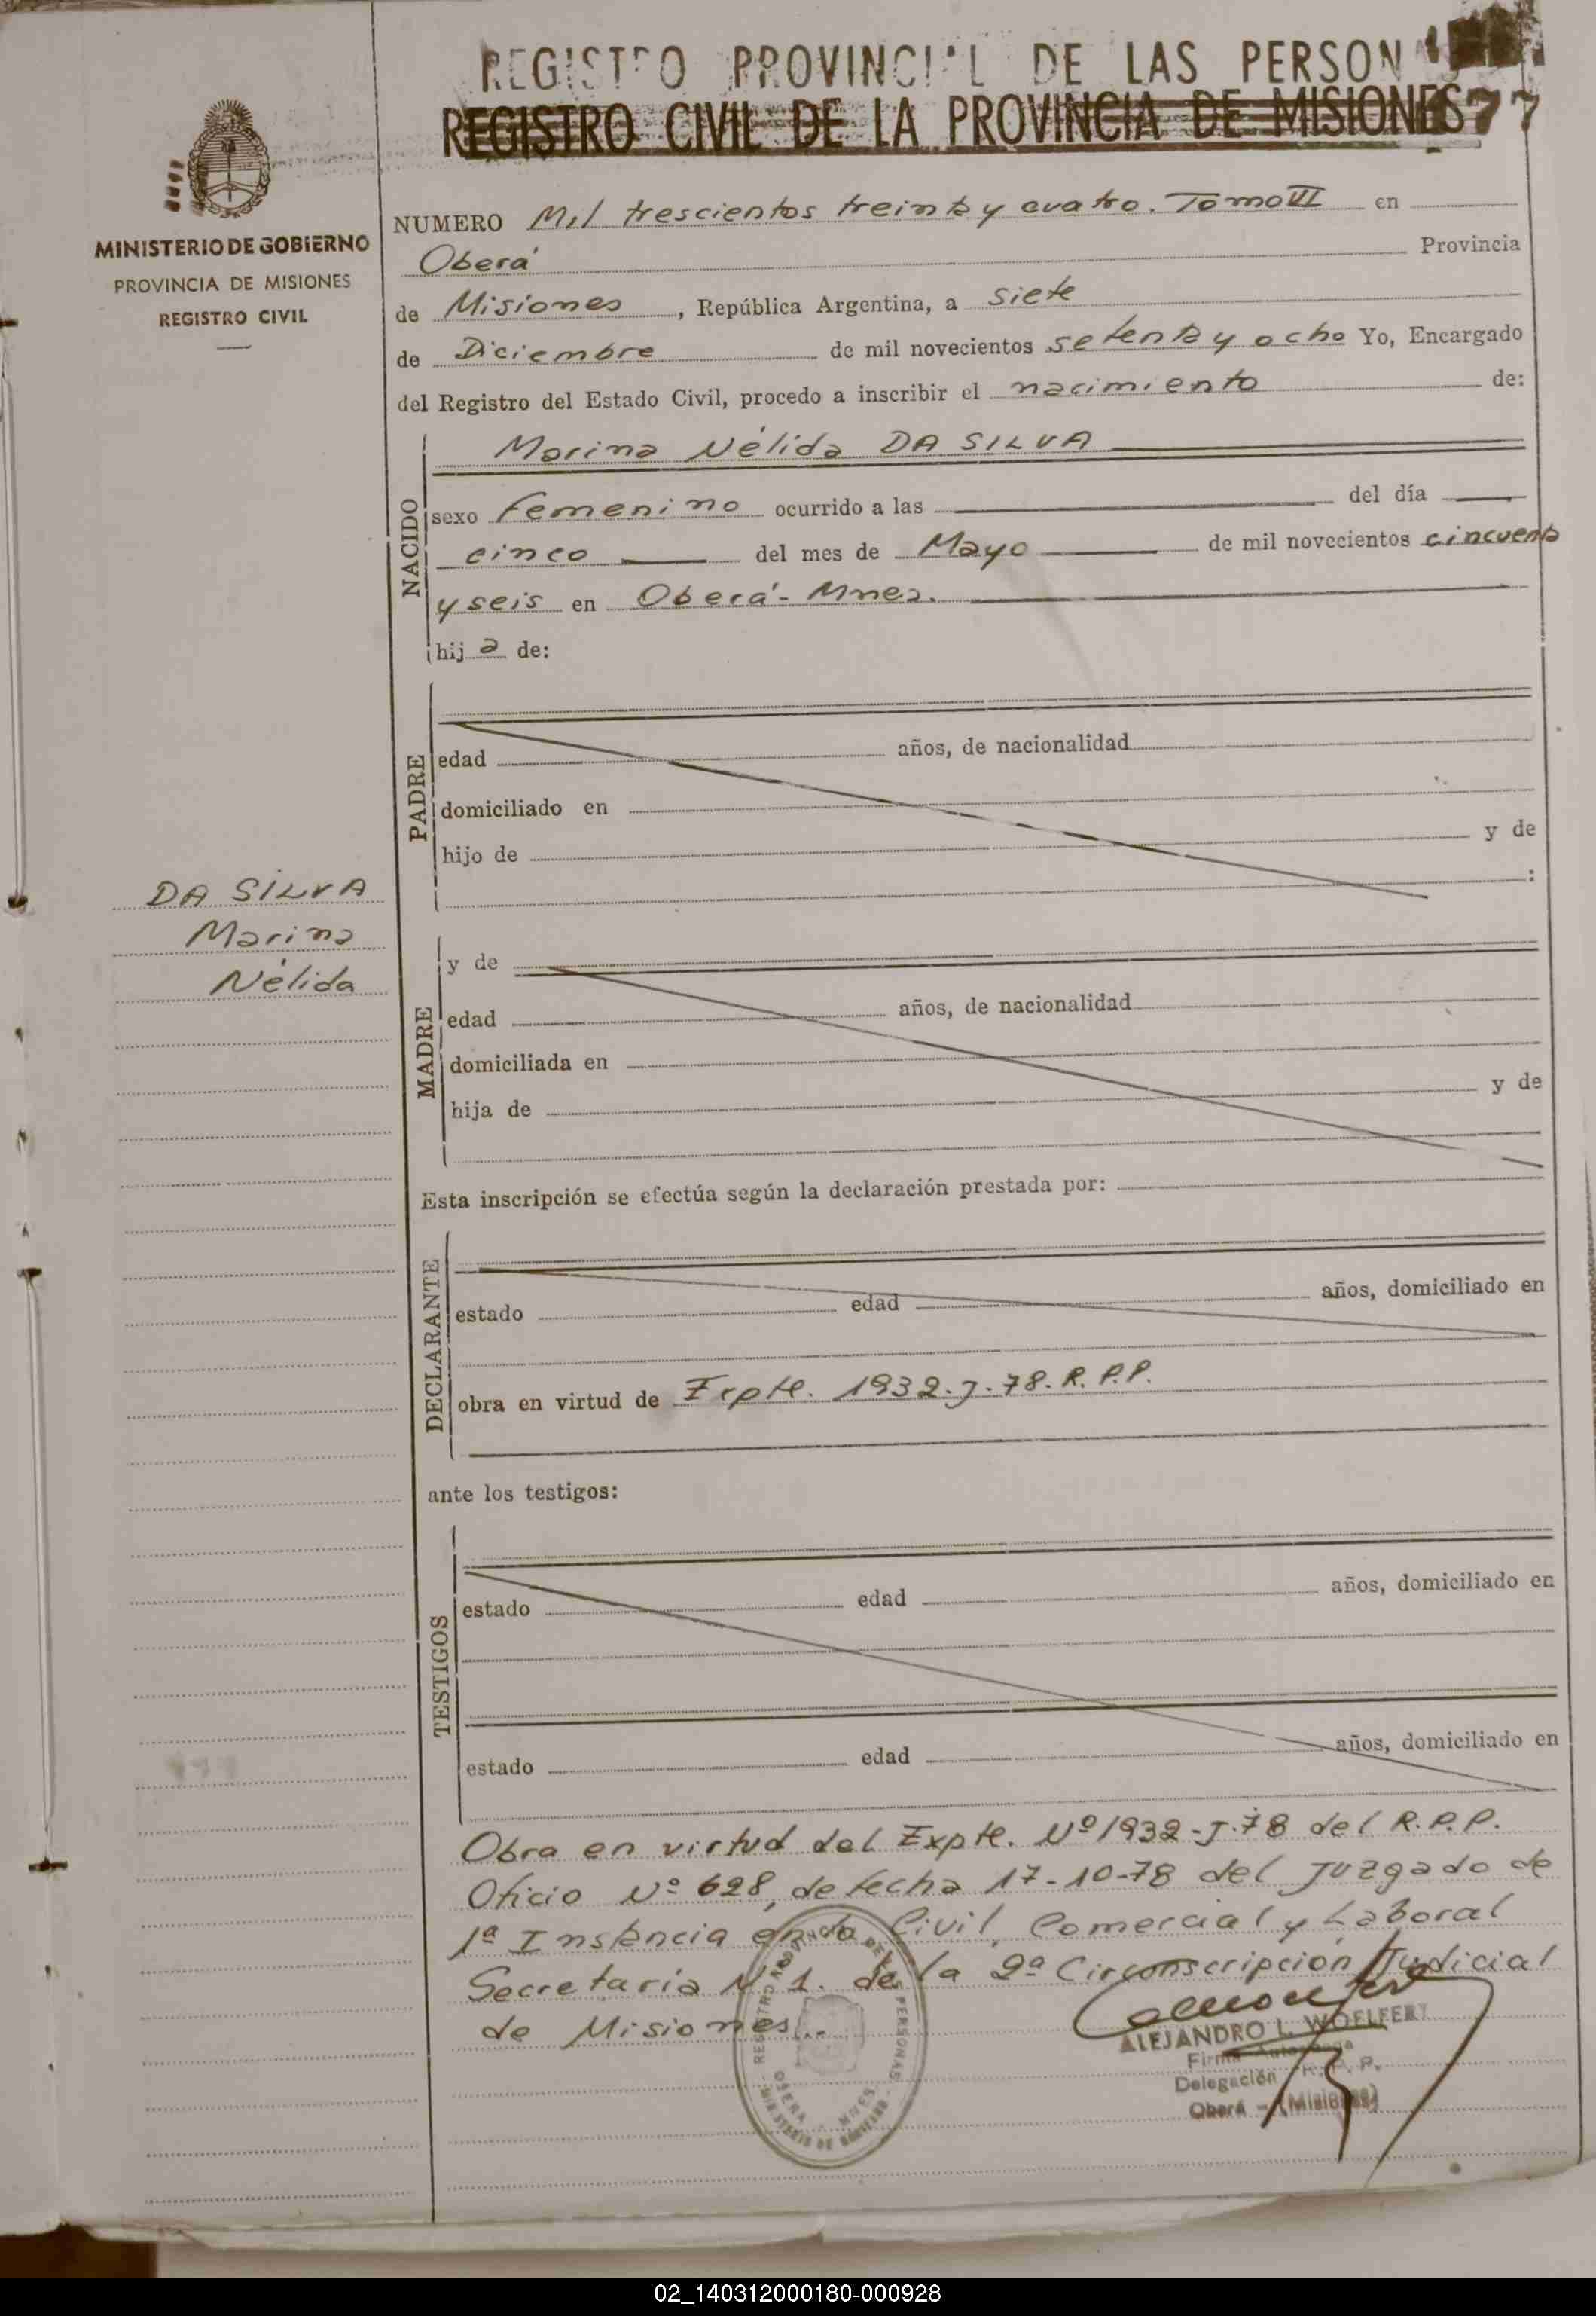 REGISTRO PROVINCIAL DE LAS PERSON
REGISTRO CIVIL DE LA PROVINCIA DE MISIONES
77
MINISTERIO DE GOBIERNO
PROVINCIA DE MISIONES
REGISTRO CIVIL
NUMERO Mil trescientos treinta y cuatro. Tomo VII en
Oberá Provincia
de Misiones, República Argentina, a siete
de Diciembre de mil novecientos setenta y ocho Yo, Encargado
del Registro del Estado Civil, procedo a inscribir el nacimiento de:
NACIDO
Marina Nélida DA SILVA
sexo Femenino ocurrido a las del día
cinco del mes de Mayo de mil novecientos cincuenta
y seis en Oberá - Mnes.
hija de:
PADRE
edad años, de nacionalidad
domiciliado en
hijo de y de
:
DA SILVA
Marina
Nélida
MADRE
y de
edad años, de nacionalidad
domiciliada en
hija de y de
Esta inscripción se efectúa según la declaración prestada por:
DECLARANTE
estado edad años, domiciliado en
obra en virtud de Expte. 1932-J-78. R.P.P.
ante los testigos:
TESTIGOS
estado edad años, domiciliado en
estado edad años, domiciliado en
Obra en virtud del Expte. Nº 1932-J-78 del R.P.P.
Oficio Nº 628, de fecha 17-10-78 del Juzgado de
1ª Instancia en lo Civil, Comercial y Laboral
Secretaría Nº 1. de la 2ª Circonscripción Judicial
de Misiones..
REGISTRO PROVINCIAL DE LAS PERSONAS
OBERA - MNES
MINISTERIO DE GOBIERNO
ALEJANDRO L. WOELFERT
Firma Autorizada
Delegación R. P. P.
Oberá - (Misiones)
02_140312000180-000928